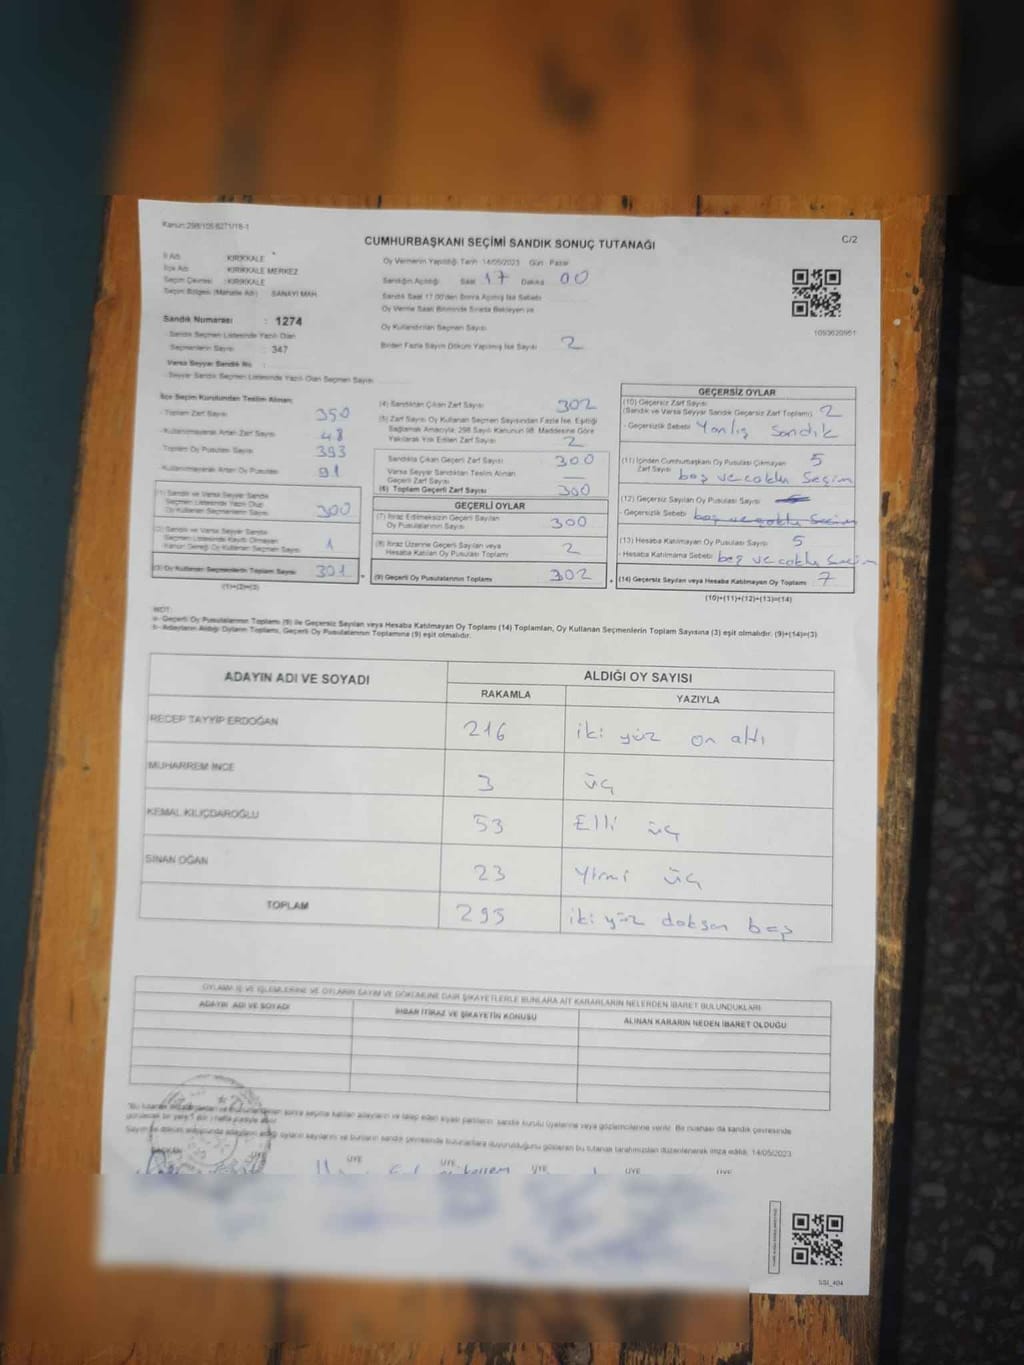 Kanun:298/105 6271/18-1
C/2
CUMHURBAŞKANI SEÇİMİ SANDIK SONUÇ TUTANAĞI
İl Adı : KIRIKKALE
İlçe Adı : KIRIKKALE MERKEZ
Seçim Çevresi : KIRIKKALE
Seçim Bölgesi (Mahalle Adı) : SANAYİ MAH.
Sandık Numarası : 1274
Sandık Seçmen Listesinde Yazılı Olan
Seçmenlerin Sayısı : 347
Varsa Seyyar Sandık No :
Seyyar Sandık Seçmen Listesinde Yazılı Olan Seçmen Sayısı
Oy Vermenin Yapıldığı Tarih 14/05/2023 Gün : Pazar
Sandığın Açıldığı Saat 17 Dakika 00
Sandık Saat 17.00'den Sonra Açılmış İse Sebebi
Oy Verme Saati Bitiminde Sırada Bekleyen ve
Oy Kullandırılan Seçmen Sayısı
Birden Fazla Sayım Döküm Yapılmış İse Sayısı 2
1093620951
İlçe Seçim Kurulundan Teslim Alınan;
- Toplam Zarf Sayısı 350
- Kullanılmayarak Artan Zarf Sayısı 48
- Toplam Oy Pusulası Sayısı 393
- Kullanılmayarak Artan Oy Pusulası 91
(1) Sandık ve Varsa Seyyar Sandık
Seçmen Listesinde Yazılı Olup
Oy Kullanan Seçmenlerin Sayısı 300
(2) Sandık ve Varsa Seyyar Sandık
Seçmen Listesinde Kayıtlı Olmayan
Kanun Gereği Oy Kullanan Seçmen Sayısı 1
(3) Oy Kullanan Seçmenlerin Toplam Sayısı 301
(1)+(2)=(3)
(4) Sandıktan Çıkan Zarf Sayısı 302
(5) Zarf Sayısı Oy Kullanan Seçmen Sayısından Fazla İse, Eşitliği
Sağlamak Amacıyla, 298 Sayılı Kanunun 98. Maddesine Göre
Yakılarak Yok Edilen Zarf Sayısı 2
Sandıkta Çıkan Geçerli Zarf Sayısı 300
Varsa Seyyar Sandıktan Teslim Alınan
Geçerli Zarf Sayısı —
(6) Toplam Geçerli Zarf Sayısı 300
GEÇERLİ OYLAR
(7) İtiraz Edilmeksizin Geçerli Sayılan
Oy Pusulalarının Sayısı 300
(8) İtiraz Üzerine Geçerli Sayılan veya
Hesaba Katılan Oy Pusulası Toplamı 2
(9) Geçerli Oy Pusulalarının Toplamı 302
GEÇERSİZ OYLAR
(10) Geçersiz Zarf Sayısı
(Sandık ve Varsa Seyyar Sandık Geçersiz Zarf Toplamı) 2
- Geçersizlik Sebebi Yanlış Sandık
(11) İçinden Cumhurbaşkanı Oy Pusulası Çıkmayan
Zarf Sayısı 5
boş ve çoklu Seçim
(12) Geçersiz Sayılan Oy Pusulası Sayısı
- Geçersizlik Sebebi boş ve çoklu Seçim
(13) Hesaba Katılmayan Oy Pusulası Sayısı 5
- Hesaba Katılmama Sebebi boş ve çoklu Seçim
(14) Geçersiz Sayılan veya Hesaba Katılmayan Oy Toplamı 7
(10)+(11)+(12)+(13)=(14)
NOT:
a- Geçerli Oy Pusulalarının Toplamı (9) ile Geçersiz Sayılan veya Hesaba Katılmayan Oy Toplamı (14) Toplamları, Oy Kullanan Seçmenlerin Toplam Sayısına (3) eşit olmalıdır. (9)+(14)=(3)
b- Adayların Aldığı Oyların Toplamı, Geçerli Oy Pusulalarının Toplamına (9) eşit olmalıdır.
ADAYIN ADI VE SOYADI
ALDIĞI OY SAYISI
RAKAMLA YAZIYLA
RECEP TAYYİP ERDOĞAN 216 iki yüz on altı
MUHARREM İNCE 3 üç
KEMAL KILIÇDAROĞLU 53 Elli üç
SİNAN OĞAN 23 Yirmi üç
TOPLAM 295 iki yüz doksan beş
OYLAMA İŞ VE İŞLEMLERİNE VE OYLARIN SAYIM VE DÖKÜMÜNE DAİR ŞİKAYETLERLE BUNLARA AİT KARARLARIN NELERDEN İBARET BULUNDUKLARI
ADAYIN ADI VE SOYADI
İHBAR İTİRAZ VE ŞİKAYETİN KONUSU
ALINAN KARARIN NEDEN İBARET OLDUĞU
sonra seçime katılan adayların ve talep eden siyasi partilerin sandık kurulu üyelerine veya gözlemcilerine verilir. Bir nüshası da sandık çevresinde
görülecek bir yere 1 (bir) hafta süreyle asılır.
Sayım ve döküm sonucunda adayların aldığı oyların sayılarını ve bunların sandık çevresinde bulunanlara duyurulduğunu gösteren bu tutanak tarafımızdan düzenlenerek imza edildi. 14/05/2023
BAŞKAN ÜYE ÜYE ÜYE ÜYE ÜYE
SSI_404